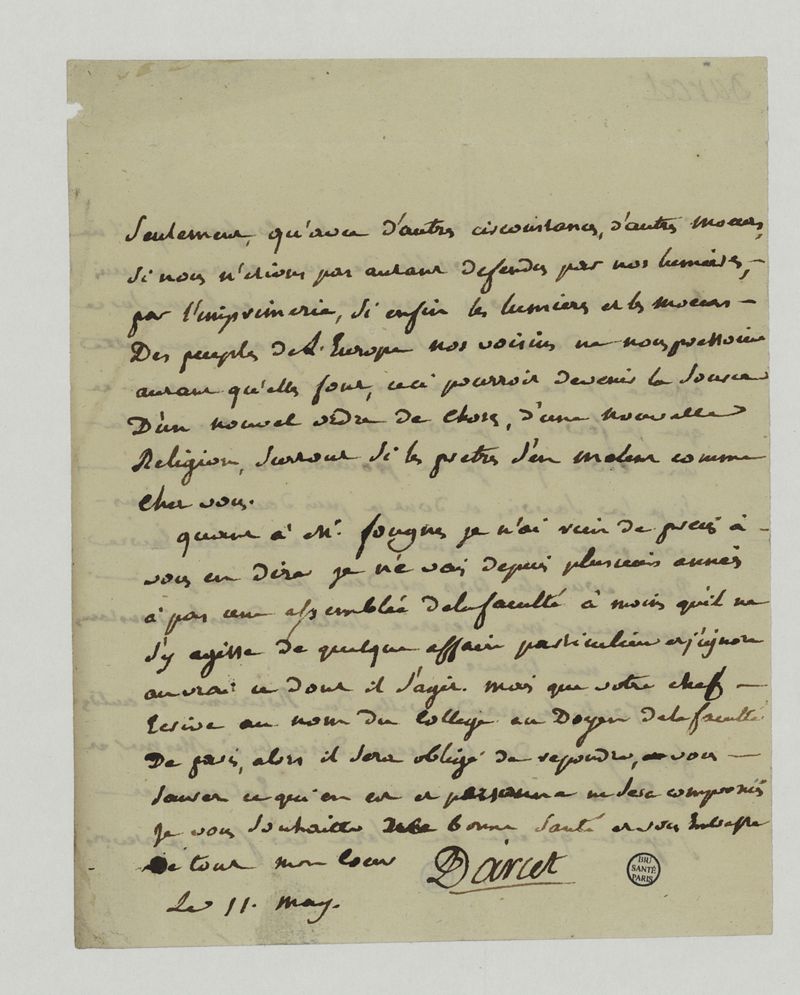 Seulement, qu'avec d'autres circonstances, d'autres moeurs,
Si nous n'etions pas autant defendus par nos lumieres, –
par l'imprimerie, Si enfin les lumieres et les moeurs –
Des peuples de L'Europe nos voisins ne nous pressoient
autant qu'elles font, ceci pourroit devenir la Source
D'un nouvel ordre de choses, d'une nouvelle
Religion, Surtout Si les pretres S'en melent comme
Chez vous.
quant à Mr. fougnes je n'ai rien de precis à –
vous en dire je ne vais depuis plusieurs années
à pas une assemblée de la faculté à moins qu'il ne
S'y agisse de quelque affaire particuliere et j'ignore
au vrai ce dont il S'agit. mais que votre chef –
Ecrive au nom du College au Doyen de la faculté
De paris, alors il Sera obligé de repondre, vous –
Saurez ce qui en est et personne ne Sera compromis
Je vous Souhaitte bonne Santé et vous Embrasse
De tout mon Coeur Darcet
Le 11. may.
BIU
SANTÉ
PARIS
Darcet